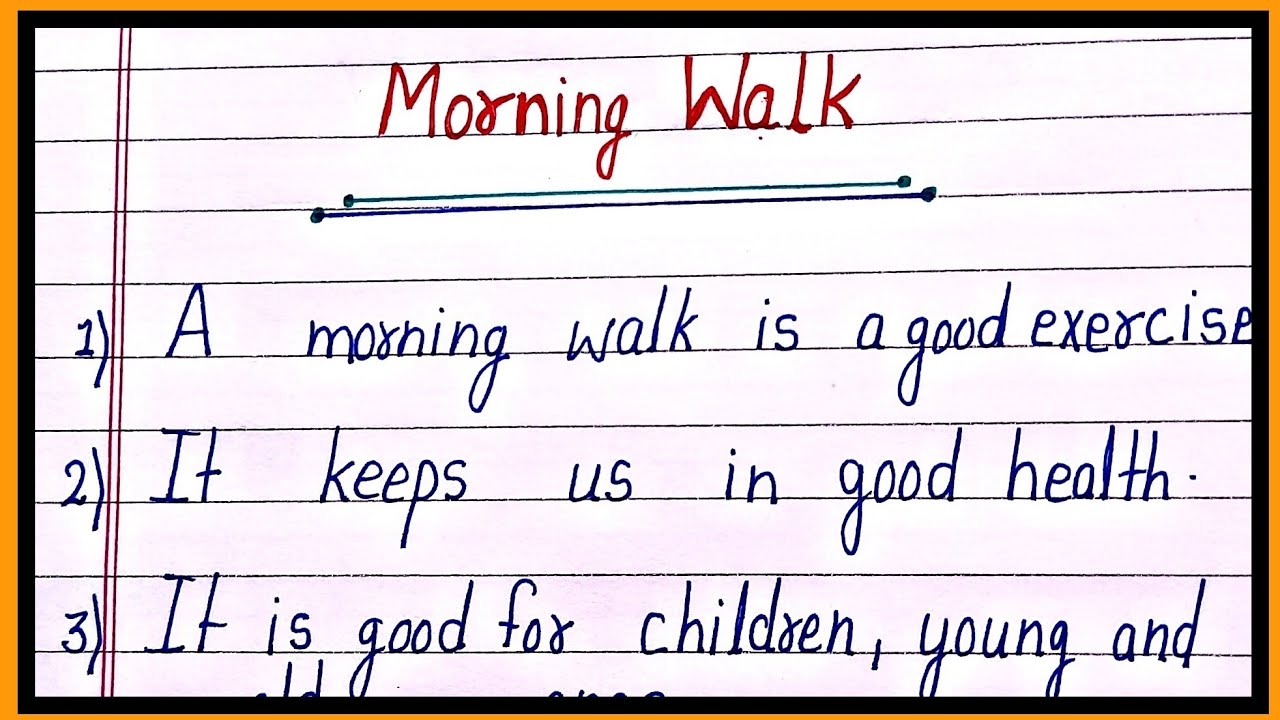 Morning Walk
1) A morning walk is a good exercise
2) It keeps us in good health.
3) It is good for children, young and
old ones